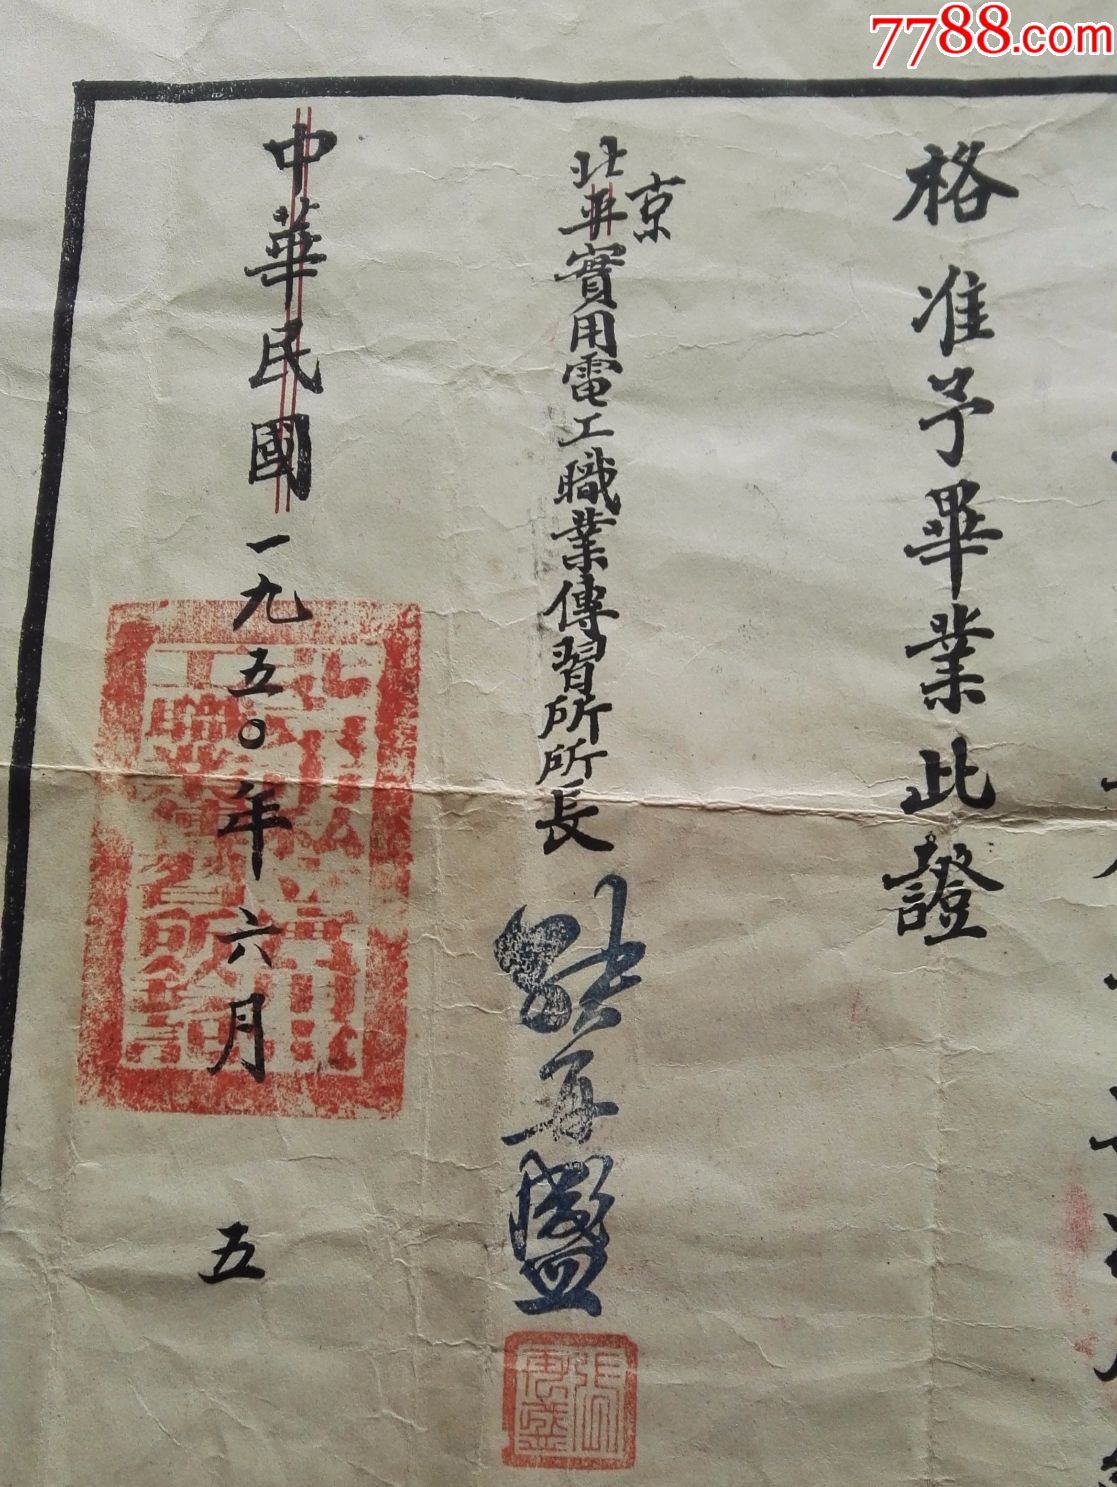 7788.com
格准予畢業此證
北平實用電工職業傳習所所長
京
張再盛
張再盛
中華民國一九五〇年六月 五